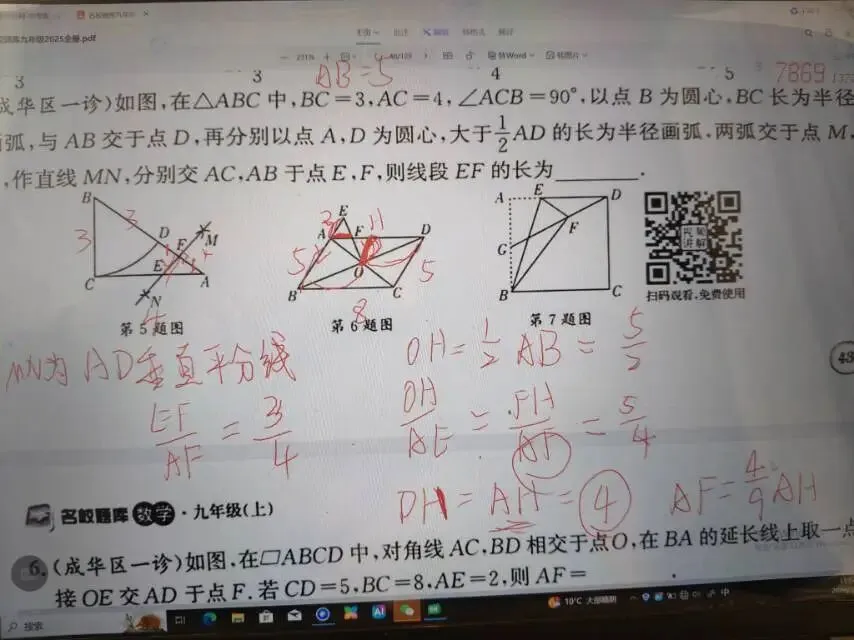 九年级2025全册.pdf
221%
转Word
转图片
AB=5
7869
3 3 4 5
成华区一诊)如图,在△ABC 中,BC=3,AC=4,∠ACB=90°,以点 B 为圆心,BC 长为半径
画弧,与 AB 交于点 D,再分别以点 A,D 为圆心,大于1/2AD 的长为半径画弧.两弧交于点 M,
,作直线 MN,分别交 AC,AB 于点 E,F,则线段 EF 的长为________.
B 3 3 D F M E C A N 4
第 5 题图
E 2 A F H D 5 O 5 B C 8
第 6 题图
A E D F G B C
第 7 题图
视频讲解
扫码观看,免费使用
MN为 AD垂直平分线
OH=1/2 AB=5/2
43
EF/AF=3/4
OH/AE=FH/AF=5/4
DH=AH=4 AF=4/9 AH
名校题库 数学·九年级(上)
6.(成华区一诊)如图.在▱ABCD 中,对角线 AC,BD 相交于点O,在 BA 的延长线上取一点
接 OE 交 AD 于点 F.若 CD=5,BC=8.AE=2,则 AF= .
搜索
10°C 大部晴朗
中